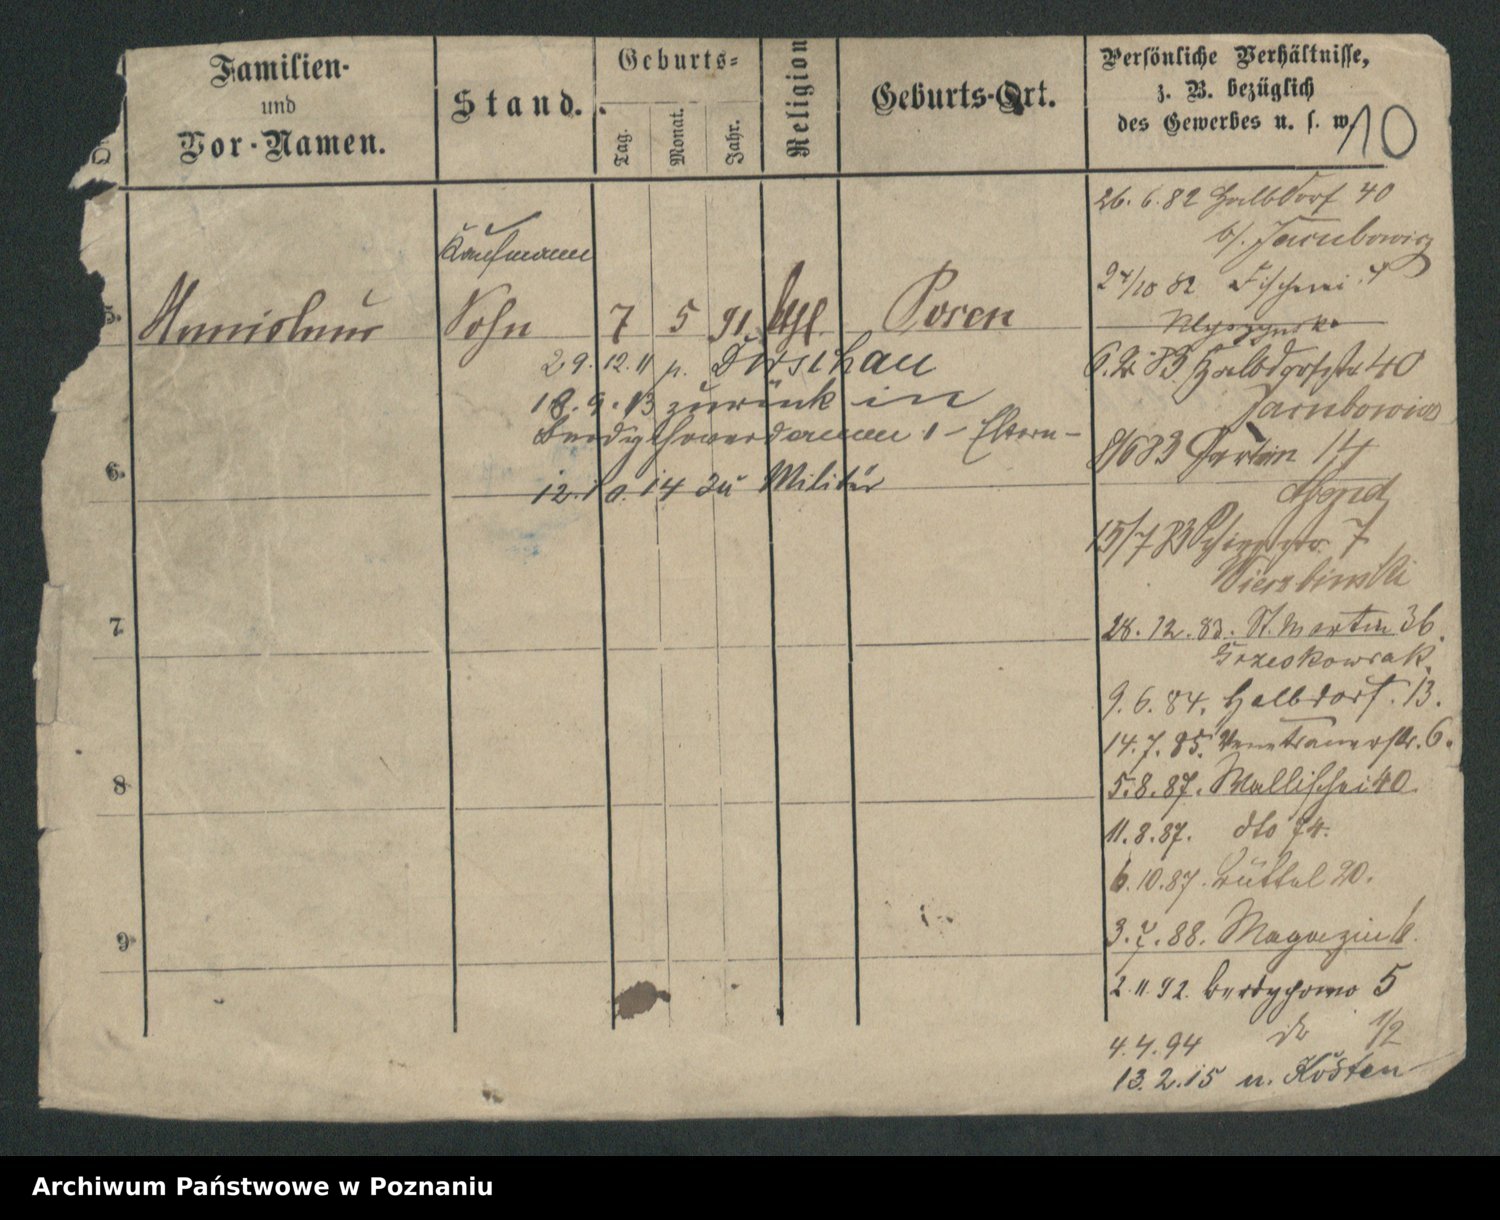 Familien-
und
Vor-Namen.
Stand.
Geburts-
Tag.
Monat.
Jahr.
Religion
Geburts-Ort.
Persönliche Verhältnisse,
z. B. bezüglich
des Gewerbes u. s. w.
10
Kaufmann
5. Stanislaus Sohn 7 5 91. kath. Posen
29.12.11 p. Dirschau
18.9.13 zurück in
Berdychowerdamm 1 - Eltern -
6.
12.10.14 zu Militär
7.
8
9
26.6.82 Halbdorf 40
b/. Jacubowicz
24/10 82 Fischerei 4
6.2.83 Halbdorfstr 40
Jacubowicz
8/6 83 Martin 14
15/7 83 7
Wierzbinski
28.12.83. St. Martin 36.
Grzeskowiak.
9.6.84. Halbdorf. 13.
14.7.85. Venetianerstr. 6.
5.8.87. Wallischei 40.
11.8.87. dto 74.
6.10.87. Büttel 20.
3.7.88. Magazin
2.11.92. Berdychowo 5
4.4.94 do 1/2
13.2.15 n. Kosten